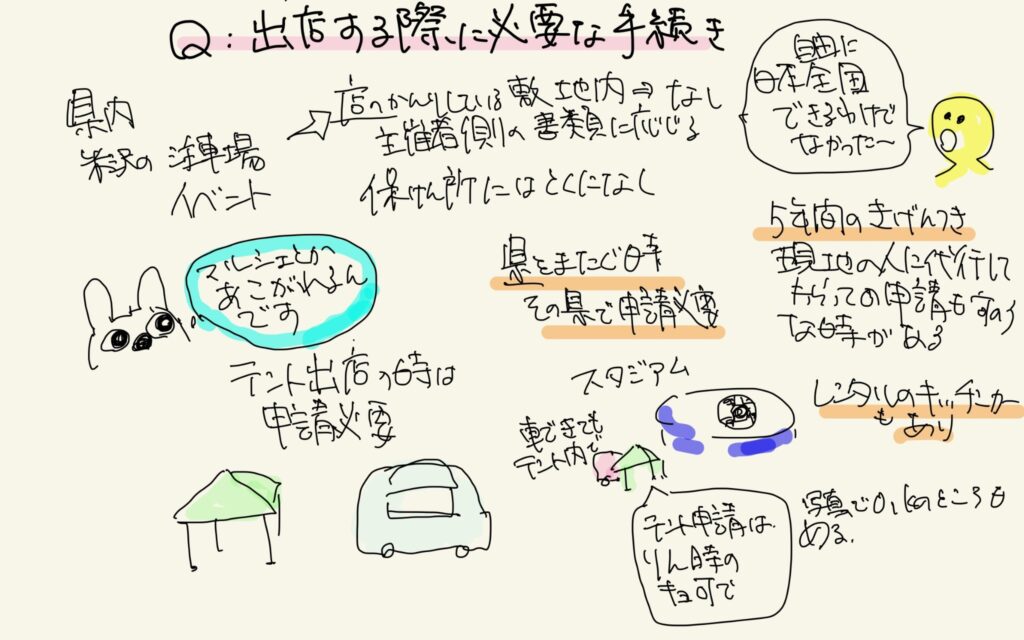 Q：出店する際に必要な手続き
県内
米沢の駐車場
イベント
店のかんりしている敷地内⇒なし
主催者側の書類に応じる
保けん所にはとくになし
自由に
日本全国
できるわけで
なかった〜
マルシェとか
あこがれるん
です
県をまたぐ時
その県で申請必要
5年間のきげんつき
現地の人に代行して
もらっての申請も
な時がある
テント出店の時は
申請必要
スタジアム
車できても
テント内で
レンタルのキッチンカー
もあり
テント申請は
りん時の
キョ可で
写真でOKのところも
ある.